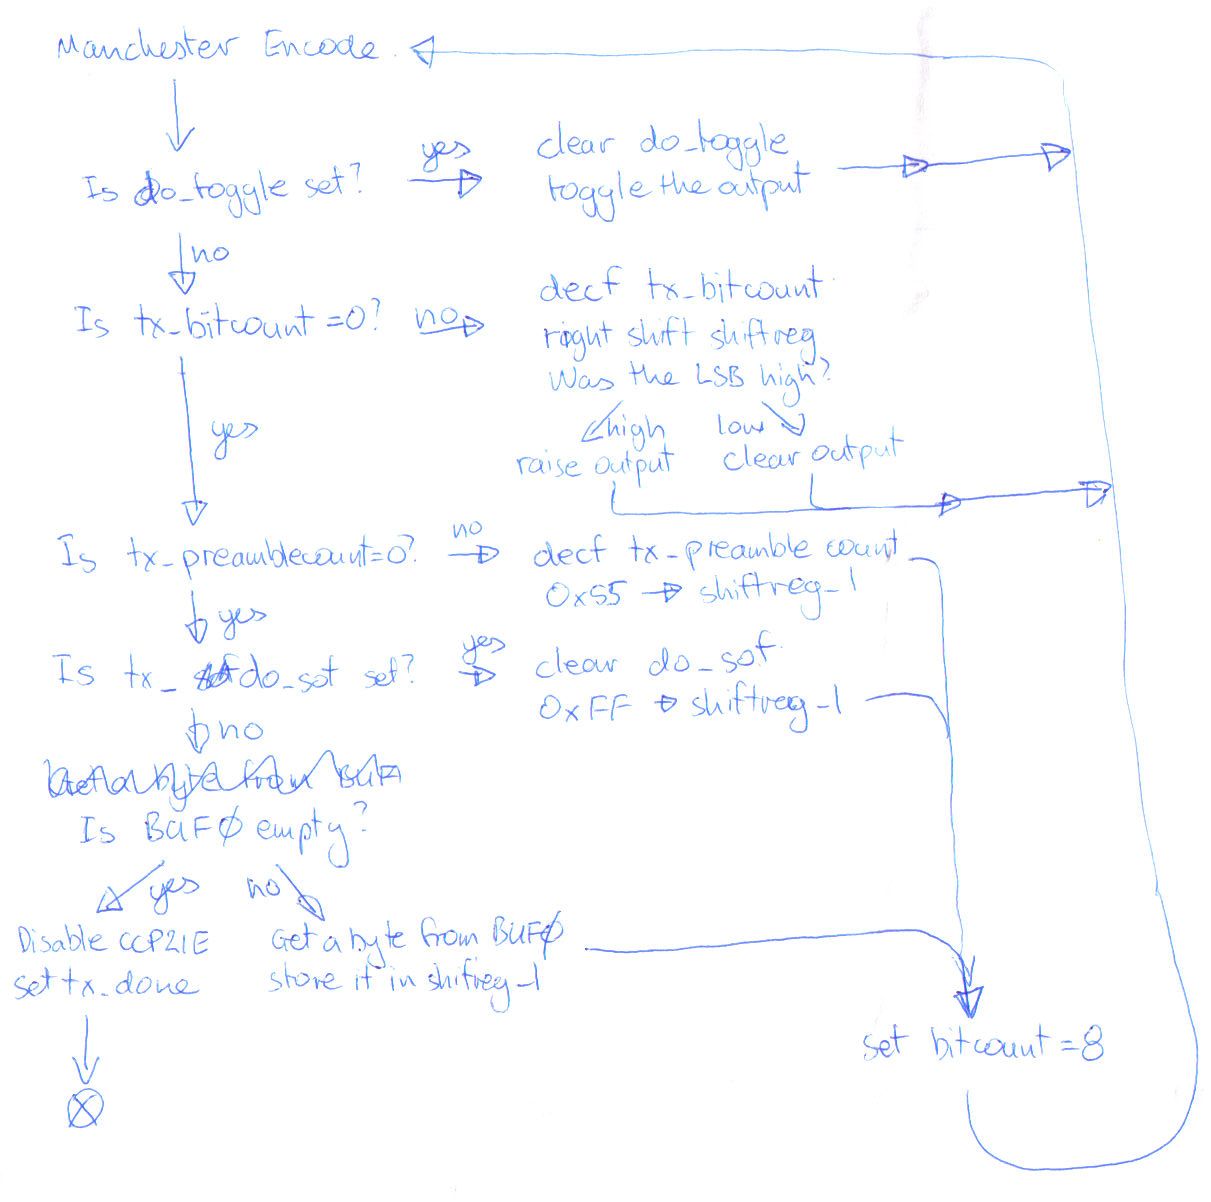 Manchester Encode.
Is do_toggle set?
yes
clear do_toggle
toggle the output
no
Is tx_bitcount =0?
no
decf tx_bitcount
right shift shiftreg
Was the LSB high?
high
low
raise output
clear output
yes
Is tx_preamblecount=0?
no
decf tx_preamble count
0x55 → shiftreg_1
yes
Is tx_ do_sof set?
yes
clear do_sof
0xFF → shiftreg_1
no
Get a byte from BUF
Is BUF0 empty?
yes
no
Disable CCP2IE
set tx_done
Get a byte from BUF0
store it in shifreg_1
set bitcount =8